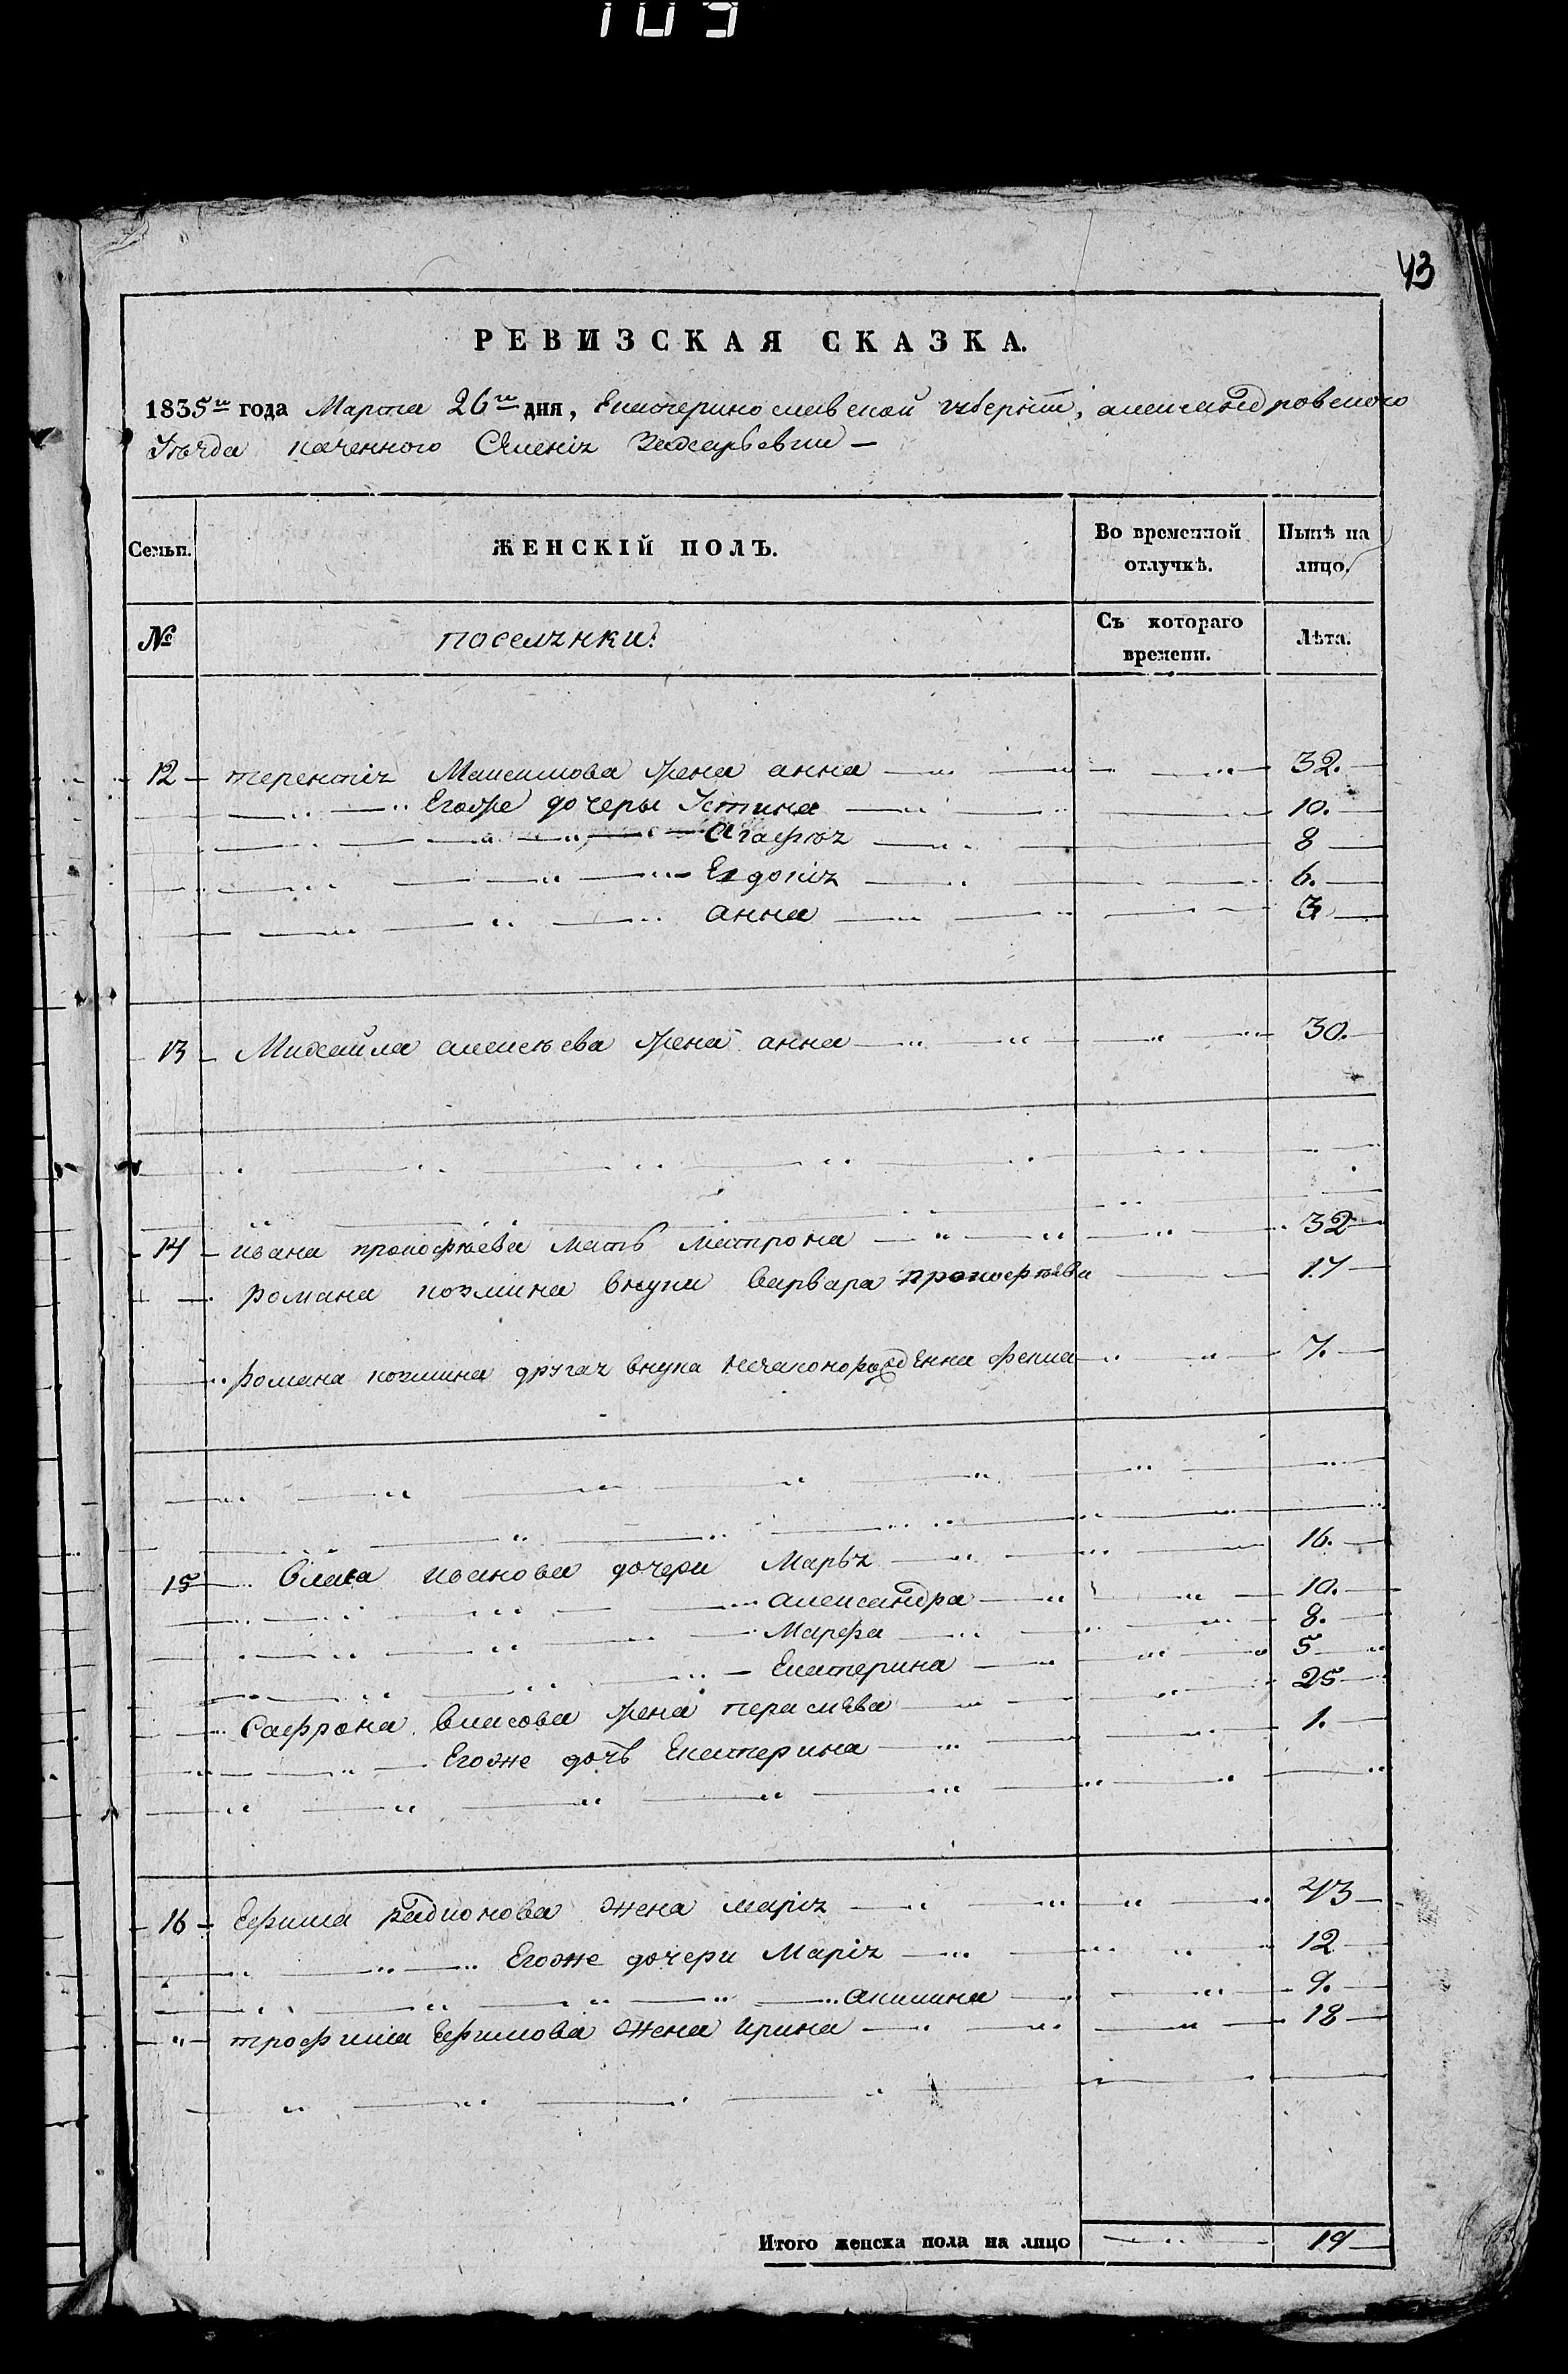 109
43
РЕВИЗСКАЯ СКАЗКА.
1835го года Марта 26го дня, Екатеринославской губерніи, александровского
Уезда казенного Селенія
Семьи. ЖЕНСКІЙ ПОЛЪ. Во временной отлучкѣ. Нынѣ на лицо.
№ поселянки: Съ котораго времени. Лѣта.
12 терентія Максимова жена анна 32.
Егоже дочеры Устина 10.
Агафія 8
Евдокія 6.
анна 3
13 Михайла алексѣева жена анна 30.
14 ивана прокофѣева мать матрона 32
романа козмина внуки варвара прокофѣева 17
романа козмина другая внука незаконорожденна 7.
15 Власа иванова дочери Марья 16.
александра 10.
Марфа 8.
Екатерина 5
Сафрона власова жена 25
Егоже дочь Екатерина 1.
16 Ефима радионова жена марія 43
Егоже дочери Марія 12
акилина 9.
трофима Ефимова жена ирина 18
Итого женска пола на лицо 19